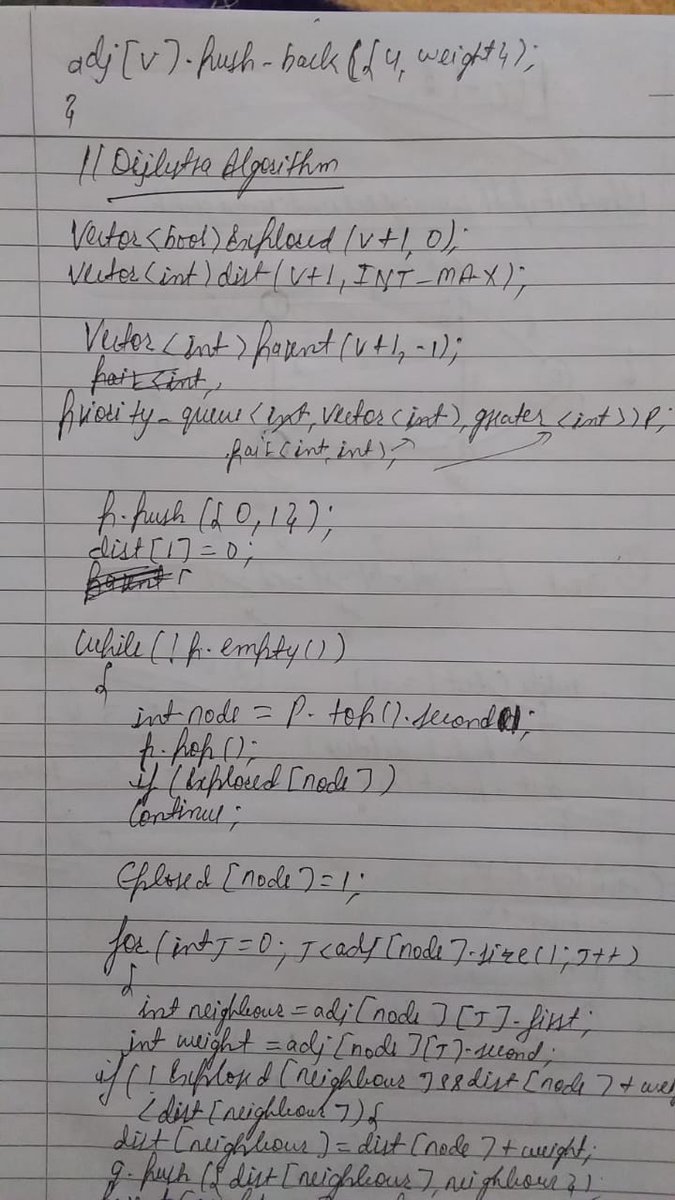 adj[v].push-back({u, weight});
}
// Dijkstra Algorithm
Vector<bool>Explored(v+1,0);
vector<int>dist(v+1,INT_MAX);
Vector<int>parent(v+1,-1);
pair<int,
priority_queue<int,vector<int>,greater<int>>p;
pair<int,int>,
p.push({0,1});
dist[1]=0;
parent[
while(!p.empty())
{
int node = p.top().second;
p.pop();
if(Explored[node])
Continue;
Eplored[node]=1;
for(int J=0; J<adj[node].size(); J++)
{
int neighbour=adj[node][J].first;
int weight=adj[node][J].second;
if(!Explored[neighbour]&&dist[node]+wei
<dist[neighbour]){
dist[neighbour]=dist[node]+weight;
q.push({dist[neighbour],neighbour})